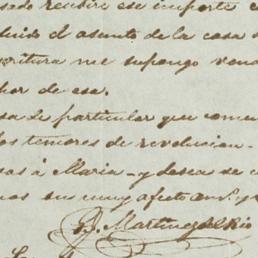 sado recibiré ese importe e
luido el asunto de la casa d
oritura me supongo vend
hor de ese.
sa de particular que comen
los temores de revolucion.
as á Maria - y desea se c
nos su muy afecto am.º y
P. Martinez del Rio